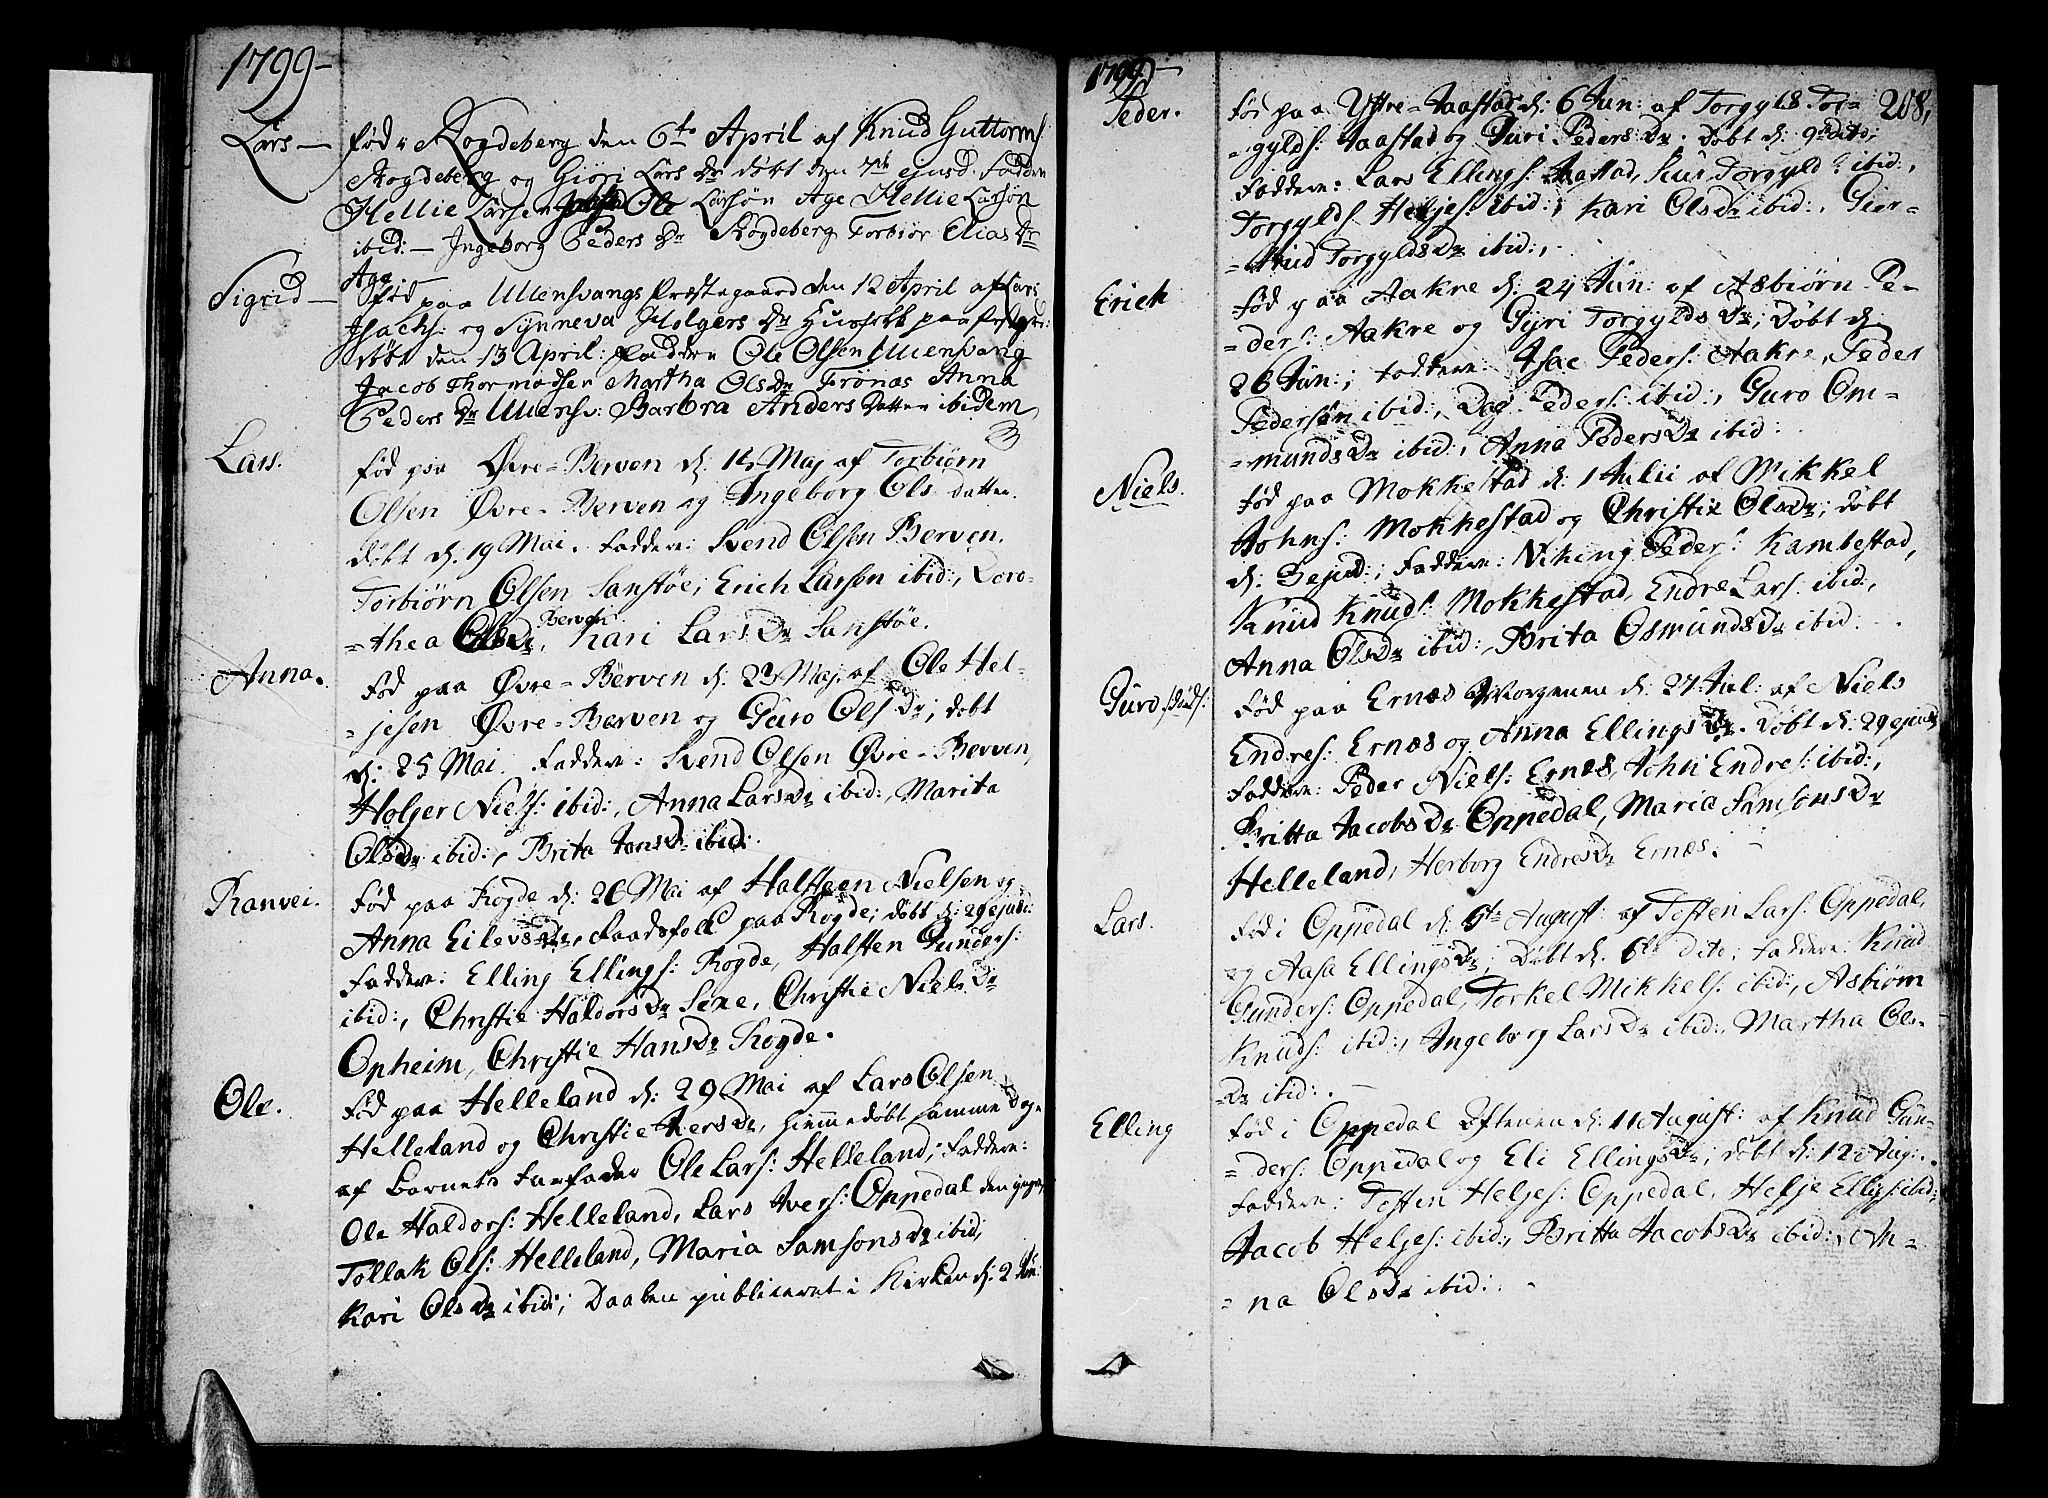 1799-
Lars — fød Rogdeberg den 6te April af Knud Guttorms
Rogdeberg og Giøri Lars Dr døbt den 7de ejusd. Faddere
Hellie Larsen Ole Larsøn Age Hellie Larsøn
ibid: — Ingeborg Peders Dr Rogdeberg Torbiør Elias Dr
Aga
Sigrid — fød paa Ullensvangs Præstegaard den 12 April af Lars
Isachs: og Synneva Holgers Dr Huusfolk paa
døbt den 13 April: Faddere Ole Olsen Ullensvang
Jacob Thormodsen Martha Ols Dr Frønæs Anna
Peders Dr Ullensv: Barbra Anders Datter ibidem
Lars. fød paa Øvre-Berven d: 14 Maj af Torbiørn
Olsen Øvre-Berven og Ingeborg Ols datter.
døbt d: 19 Mai. Faddere: Svend Olsen Berven.
Torbiørn Olsen Sanstøe, Erich Larsen ibid:, Doro-
=thea OlsDr Berven, Kari Lars Dr Sanstøe.
Anna. Fød paa Øvre-Berven d: 23 Maj af Ole Hel-
=jesen Øvre-Berven og Guro Ols Dr; døbt
d: 25 Mai. Faddere: Svend Olsen Øvre-Berven,
Holger Niels: ibid:, Anna LarsDr ibid:, Marita
OlsDr ibid:, Brita JonsDr ibid:
Ranvei. Fød paa Rogde d: 26 Mai af Halsteen Nielsen og
Anna EilevsDr, Raadsfolk paa Rogde; døbt d: 29 ejusd:
Faddere: Elling Ellings: Rogde, Halsten Gunders:
ibid:, Christie HaldorsDr Sexe, Christie Niels Dr
Opheim, Christie HansDr Rogde.
Ole. Fød paa Helleland d: 29 Mai af Lars Olsen
Helleland og Christie IversDr, hiemmedøbt samme Dag
af Barnets Farfader Ole Lars: Helleland; Faddere:
Ole Haldors: Helleland, Lars Ivers: Oppedal den yngre,
Tollak Ols: Helleland, Maria SamsonsDr ibid,
Kari OlsDr ibid:; Daaben publiceret i Kirken d: 2 Jun:
1799 —
208,
Peder. Fød paa Yttre-Aastad d: 6 Jun: af Torgyls Tor-
=gylds: Aastad og Guri PedersDr. Døbt d: 9 dito;
Faddere: Lars Ellings: Aastad, Siur Torgylds: ibid:,
Torgylds Heljes: ibid:, Kari OlsDr ibid:, Gier-
=trud TorgyldsDr ibid:,
Erich Fød paa Aakre d: 24 Jun: af Asbiørn Pe-
=ders: Aakre og Gyri TorgyldsDr; Døbt d:
26 Jun:; Faddere: Isac Peders: Aakre, Peder
Pedersøn ibid:, Dag Peders: ibid:, Guro Om-
=mundsDr ibid:, Anna PedersDr ibid:
Niels. Fød paa Mokkestad d: 1 Julii af Mikkel
Johns: Mokkestad og Christie OlsDr; døbt
d: 3 ejusd:; Faddere: Viking Peders: Kambestad,
Knud Knuds: Mokkestad, Endre Lars: ibid:,
Anna OlsDr ibid:, Brita OsmundsDr ibid:
Guro Fød paa Ernæs Morgenen d: 27 Jul: af Niels
Endres: Ernæs og Anna EllingsDr. Døbt d: 29 ejusd:
Faddere: Peder Niels: Ernæs, John Endres: ibid:,
Britta JacobsDr Oppedal, Maria SamsonsDr
Helleland, Herborg EndresDr Ernæs.
Lars. Fød i Oppedal d: 5te August: af Tosten Lars: Oppedal,
og Aasa EllingsDr; Døbt d: 6te dito; Faddere: Knud
Gunders: Oppedal, Torkel Mikkels: ibid:, Asbiørn
Knuds: ibid:, Ingeborg LarsDr ibid:, Martha Ols-
=Dr ibid:.
Elling Fød i Oppedal Aftenen d: 11 August: af Knud Gun-
=ders: Oppedal og Eli EllingsDr; døbt d: 12 Aug:.
Faddere: Tosten Heljes: Oppedal, Helje Ellings: ibid:
Jacob Heljes: ibid:, Britta JacobsDr ibid:, An-
=na OlsDr ibid:.